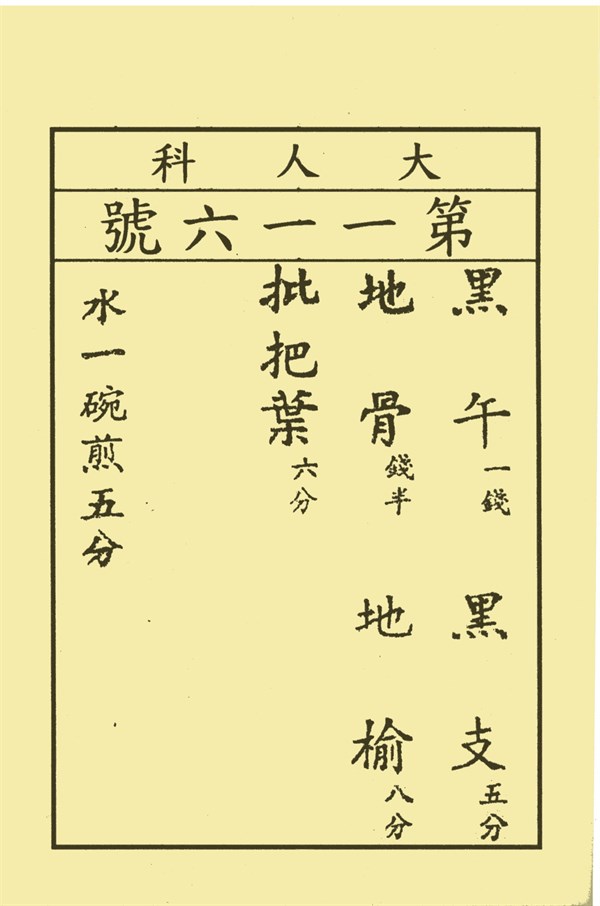 大人科
第一一六號
黑午一錢
黑支五分
地骨錢半
地榆八分
批把葉六分
水一碗煎五分